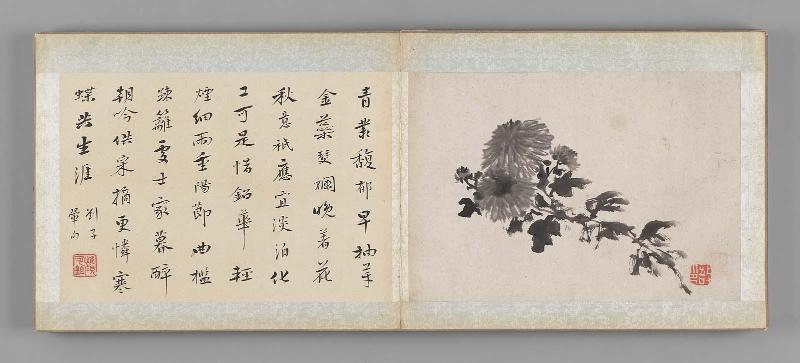 青叢馥郁早抽芽
金蘂斑斕晚着花
秋意祇應宜淡泊化
工可是惜鉛華輕
煙細雨重陽節曲檻
疎籬處士家暮醉
朝吟供采摘更憐寒
蝶共生涯
劉子
翬句